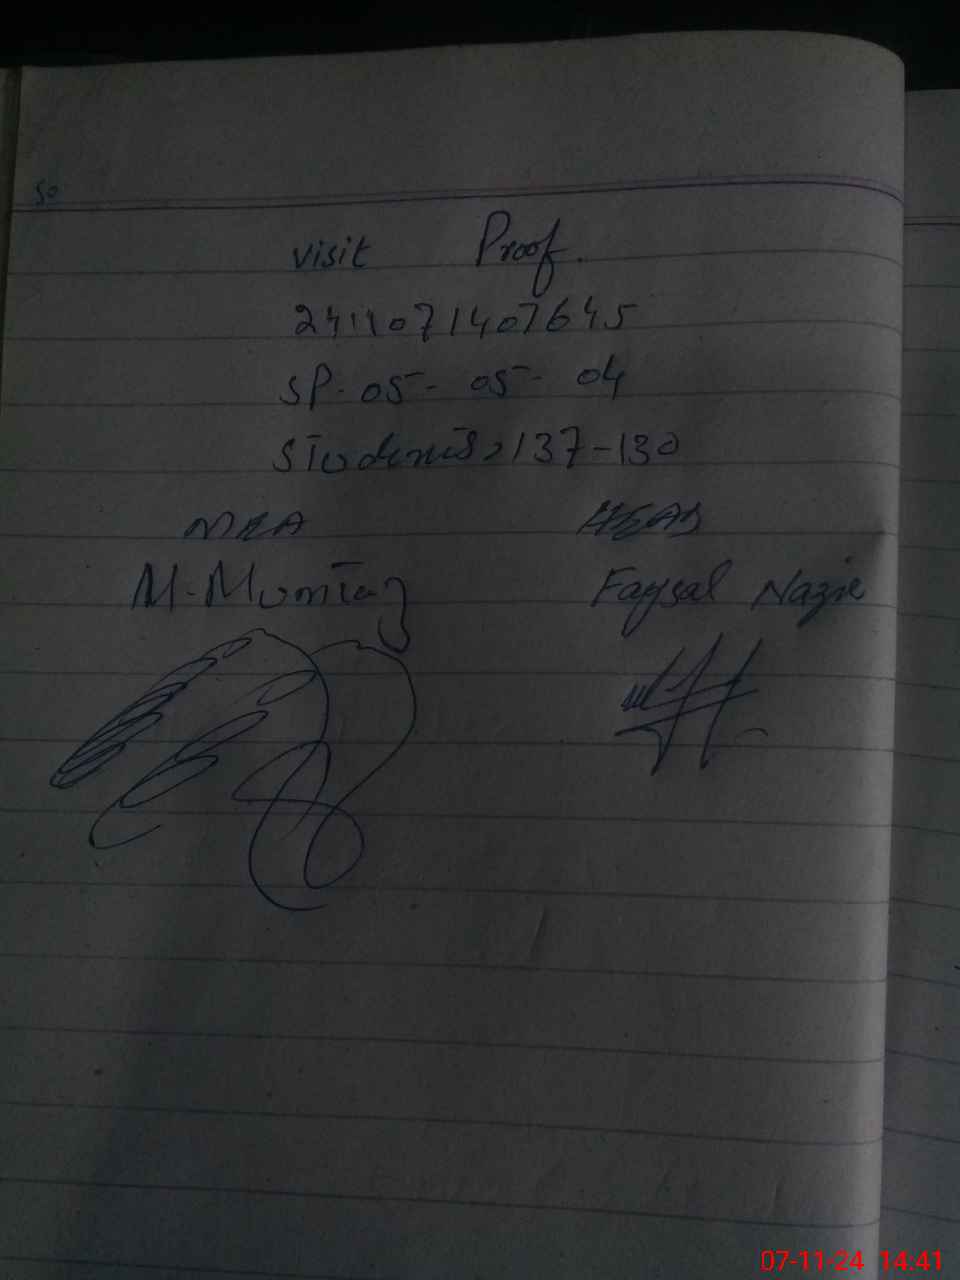 so
visit Proof.
2411071407645
SP-05-05-04
Students 137-130
MEA HEAD
M-Mumtaz Faysal Nazir
07-11-24 14:41